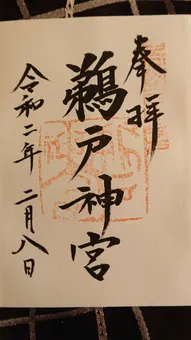 奉拝
鵜戸神宮
令和二年 二月八日